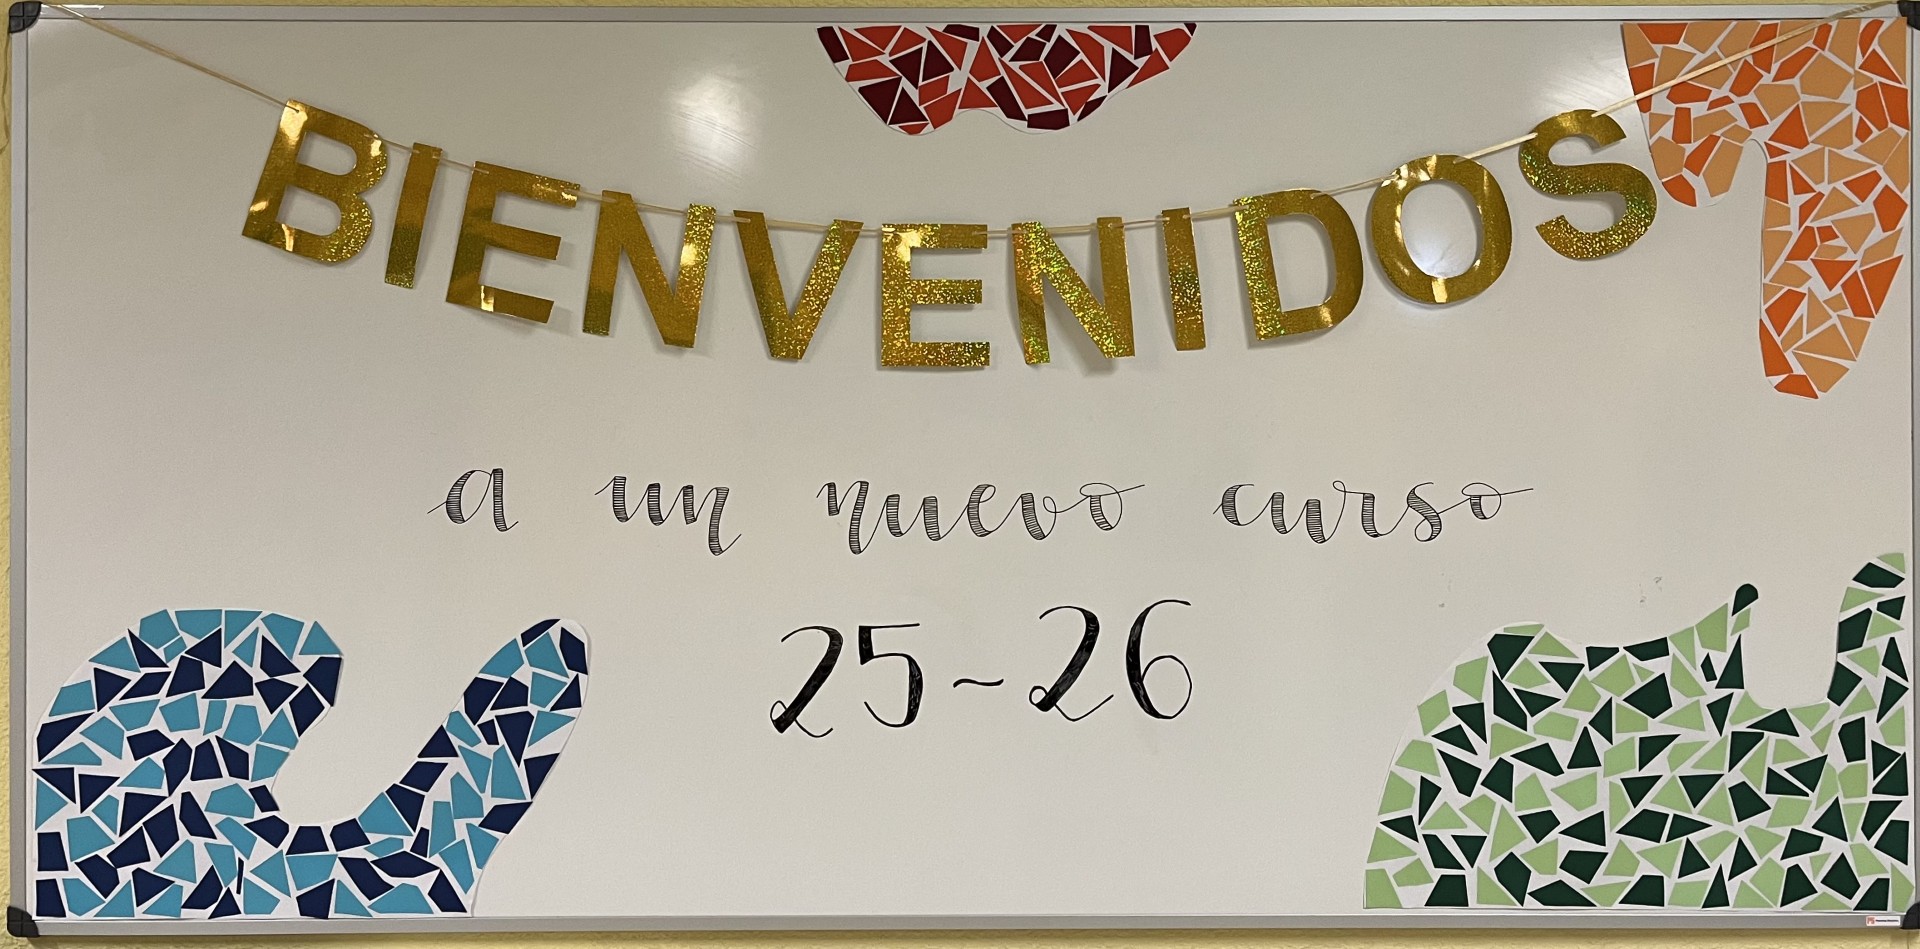 BIENVENIDOS
a un nuevo curso
25~26